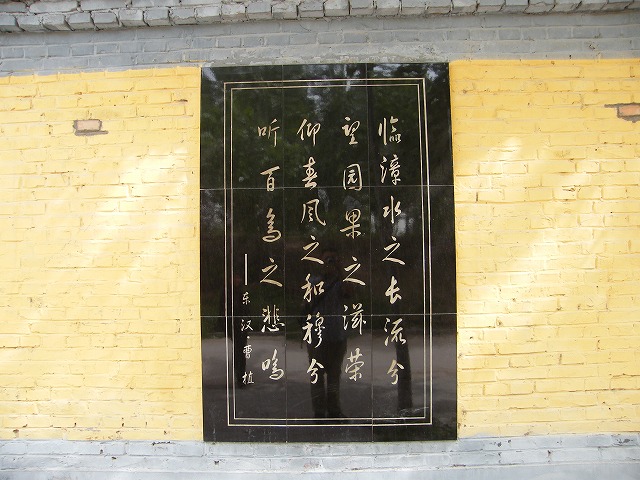 临漳水之长流兮
望园果之滋荣
仰春风之和穆兮
听百鸟之悲鸣
——东汉·曹植